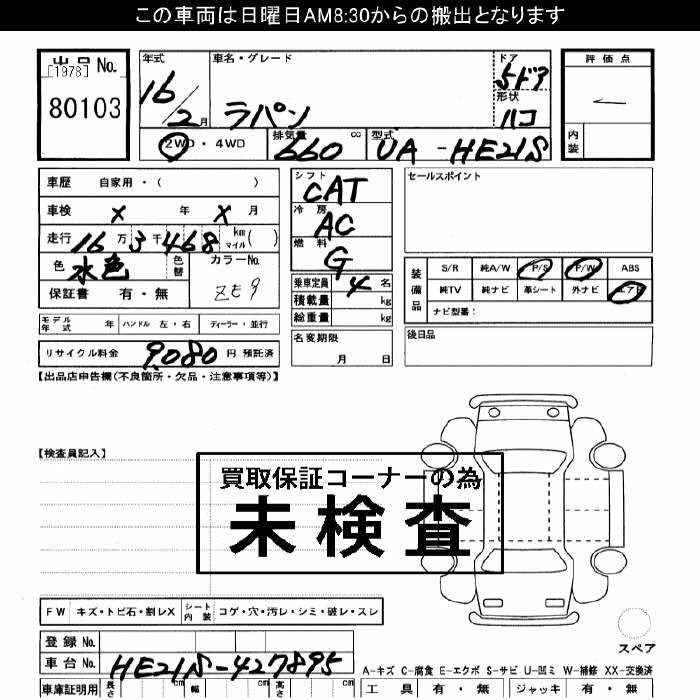 この車両は日曜日AM8:30からの搬出となります
出品 No.
[1978]
80103
年式
16/2月
車名・グレード
ラパン
ドア
5ドア
形状
ハコ
評価点
内装
2WD・4WD
排気量
660 cc
型式
UA-HE21S
車歴 自家用・( )
車検 X 年 X 月
走行 16万3千468 km マイル( )
色 水色
色替
カラーNo.
ZE9
保証書 有・無
シフト
CAT
冷房
AC
燃料
G
乗車定員 4 名
積載量 kg
総重量 kg
セールスポイント
装備品
S/R 純A/W P/S P/W ABS
純TV 純ナビ 革シート 外ナビ エアB
ナビ型番:
モデル年式 年 ハンドル 左・右 ディーラー・並行
名変期限
月 日
後日品
リサイクル料金 9,080 円 預託済
【出品店申告欄(不良箇所・欠品・注意事項等)】
【検査員記入】
買取保証コーナーの為
未検査
FW キズ・トビ石・割レX シート内装 コゲ・穴・汚レ・シミ・破レ・スレ
スペア
登録 No.
車台 No. HE21S-427895
A-キズ C-腐食 E-エクボ S-サビ U-凹ミ W-補修 XX-交換済
車庫証明用 長さ cm 幅 cm 高さ cm
工具 有・無 ジャッキ 有・無